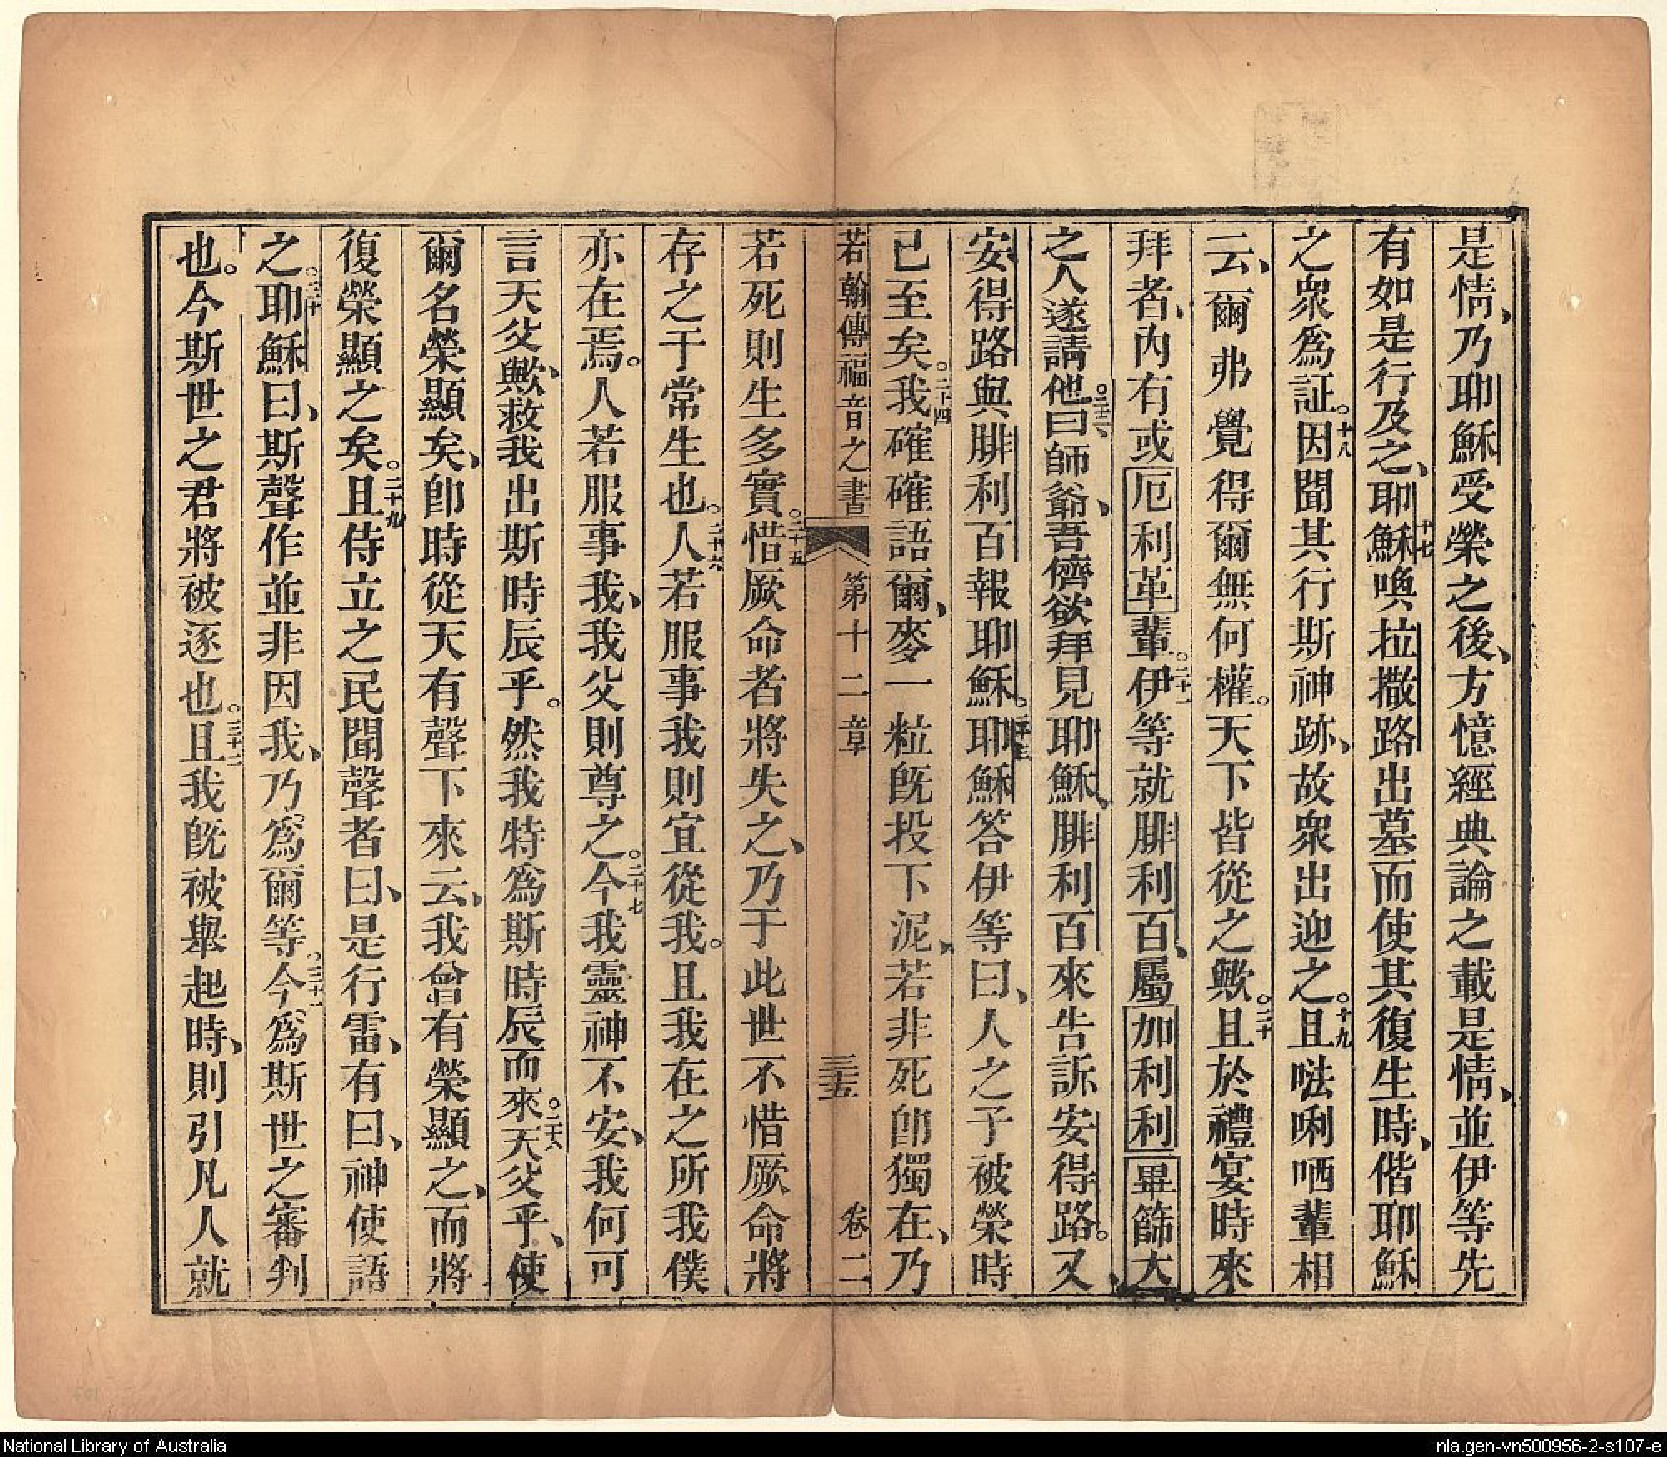 是情、乃耶穌受榮之後、方憶經典論之載是情、並伊等先
有如是行及之、十七耶穌喚拉撒路出墓而使其復生時、偕耶穌
之衆爲証。十八因聞其行斯神跡、故衆出迎之。十九且㕸唎哂輩相
云、爾弗覺得爾無何權。天下皆從之歟。二十且於禮宴時來
拜者、內有或厄利革輩。二十一伊等就腓利百、屬加利利畢篩大
之人遂請他曰、師爺、吾儕欲拜見耶穌、二十二腓利百來告訴安得路。又、
安得路與腓利百報耶穌。二十三耶穌答伊等曰、人之子被榮時
已至矣。二十四我確確語爾、麥一粒旣投下泥、若非死卽獨在、乃
若翰傳福音之書 第十二章 三十五 卷二
若死則生多實。二十五惜厥命者將失之、乃于此世不惜厥命將
存之于常生也。二十六人若服事我則宜從我。且我在之所我僕
亦在焉。人若服事我、我父則尊之。二十七今我靈神不安、我何可
言天父、歟救我出斯時辰乎。然我特爲斯時辰而來。二十八天父乎、使
爾名榮顯矣、卽時從天有聲下來云、我曾有榮顯之、而將
復榮顯之矣。二十九且侍立之民聞聲者曰、是行雷、有曰、神使語
之。三十耶穌曰、斯聲作並非因我、乃爲爾等。三十一今爲斯世之審判
也。今斯世之君將被逐也。三十二且我旣被舉起時、則引凡人就
National Library of Australia
nla.gen-vn500956-2-s107-e